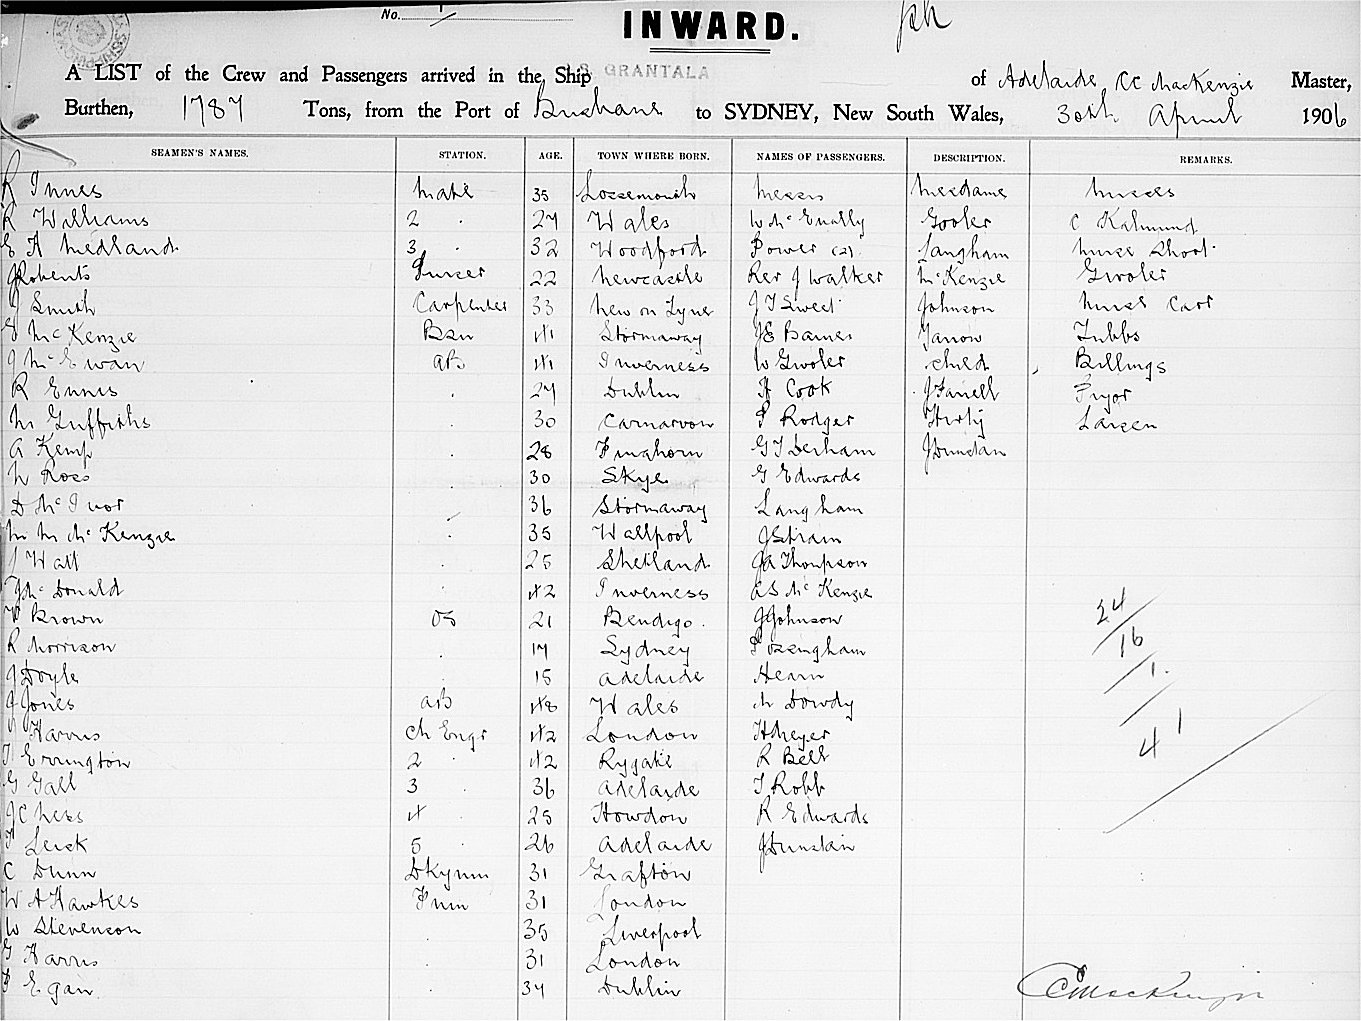 No. 1
INWARD.
A LIST of the Crew and Passengers arrived in the Ship S.S. GRANTALA of Adelaide, CC MacKenzie Master,
Burthen, 1787 Tons, from the Port of Brisbane to SYDNEY, New South Wales, 30th April 1906
SEAMEN'S NAMES. STATION. AGE. TOWN WHERE BORN. NAMES OF PASSENGERS. DESCRIPTION. REMARKS.
R Innes Mate 35 Lossemouth Messrs Mesdames Misses
R Williams 2 27 Wales W McEnally Gooler C Kalmund
E A Medland 3 32 Woodford Power (2) Langham Nurse Short
J Roberts Purser 22 Newcastle Rev J Walker McKenzie Gwoler
J Smith Carpenter 33 New on Tyne J T Sweet Johnson Nurse Carr
McKenzie Bsn 41 Stornaway J E Barnes Yarrow Tubbs
J McEwan AB 41 Inverness W Gwoler child Billings
R Ennis 27 Dublin H Cook J Farrell Pryor
M Griffiths 30 Carnarvon P Rodger Larsen
A Kemp 28 G T Derham J Dunstan
N Ross 30 Skye G Edwards
D McIvor 36 Stornaway Langham
M M McKenzie 35 Wallpool J Strain
J Watt 25 Shetland J A Thompson
J McDonald 42 Inverness A S McKenzie
W Brown OS 21 Bendigo J Johnson
R Morrison 17 Sydney
J Doyle 15 Adelaide Hearn
J Jones AB 48 Wales M Dowdy
Harris Ch Engr 42 London H Meyer
T Errington 2 42 Rygate R Bell
G Gall 3 36 Adelaide T Robb
J C Ness 4 25 Howdon R Edwards
Leisk 5 26 Adelaide J Dunstan
C Dunn Dkyman 31 Grafton
W A Hawkes Fmn 31 London
W Stevenson 35 Liverpool
G Harris 31 London
P Egan 34 Dublin
24
16
1
41
CC MacKenzie